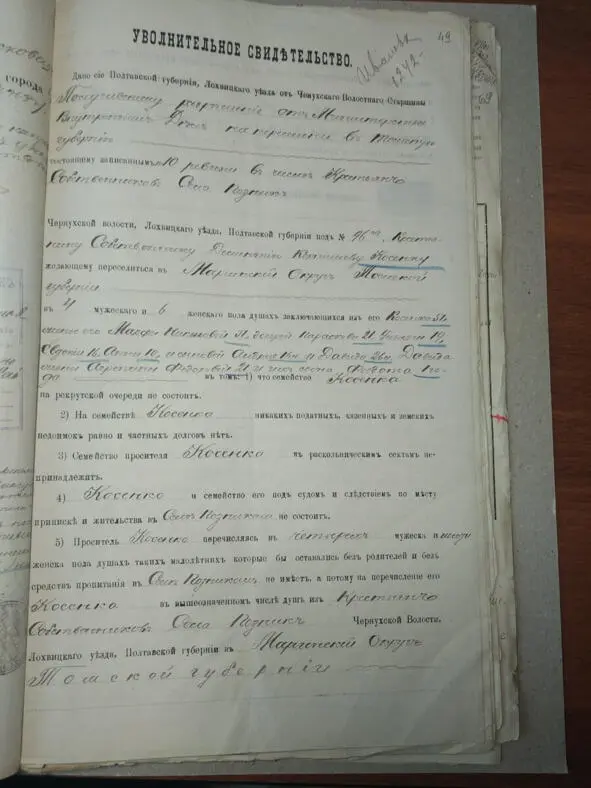 49
УВОЛНИТЕЛЬНОЕ СВИДѢТЕЛЬСТВО.
1242
Дано сіе Полтавской губерніи, Лохвицкаго уѣзда отъ Чернухскаго Волостнаго Старшины
Получившему разрѣшеніе отъ Министерства
Внутреннихъ Дѣлъ на переселеніе въ Томскую
губернію
состоящему записаннымъ по 10 ревизіи въ числѣ Крестьянъ
Собственниковъ Села Позникъ
Чернухской волости, Лохвицкаго уѣзда, Полтавской губерніи подъ № 96, Крестья-
нину Собственнику Косенку
желающему переселиться въ Маріинскій Округъ Томской
губерніи
въ 4 мужескаго и 6 женскаго пола душахъ заключающихся изъ его Косенка 51
жены его 51, дочерей Параскевы 21, 19,
Евдокіи 16, Анны 10, и сыновей Андрея и Давида 26, Давида
жены Федоровой 21 и сына Федота 1 го-
да въ томъ: 1) что семейство Косенка
на рекрутской очереди не состоитъ.
2) На семействѣ Косенка никакихъ податныхъ, казенныхъ и земскихъ
недоимокъ равно и частныхъ долговъ нѣтъ.
3) Семейство просителя Косенка къ раскольническимъ сектамъ не-
принадлежитъ.
4) Косенко и семейство его подъ судомъ и слѣдствіемъ по мѣсту
приписки и жительства въ Селѣ Позникахъ не состоитъ.
5) Проситель Косенко перечисляясь въ четырехъ мужеска и шести
женска пола душахъ такихъ малолѣтнихъ которые бы оставались безъ родителей и безъ
средствъ пропитанія въ Селѣ Позникахъ не имѣетъ, а потому на перечисленіе его
Косенка въ вышеозначенномъ числѣ душъ изъ Крестьянъ
Собственниковъ Села Позникъ Чернухской Волости,
Лохвицкаго уѣзда, Полтавской губерніи въ Маріинскій Округъ
Томской губерніи